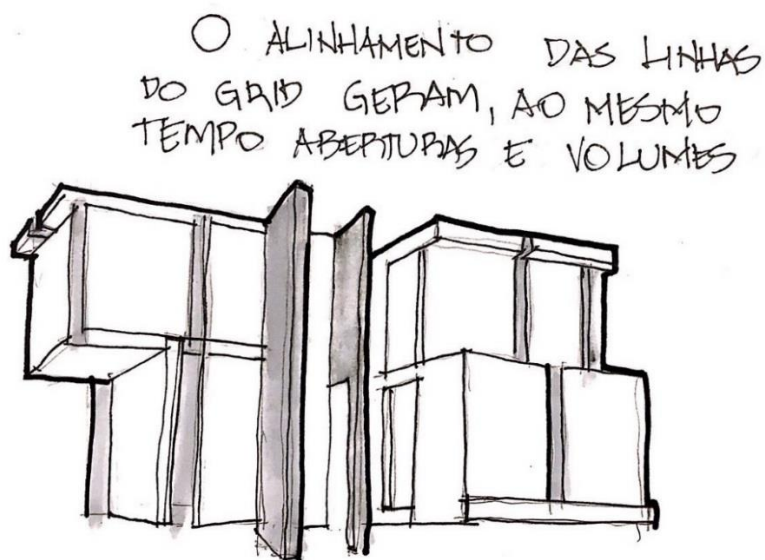 O ALINHAMENTO DAS LINHAS
DO GRID GERAM, AO MESMO
TEMPO ABERTURAS E VOLUMES